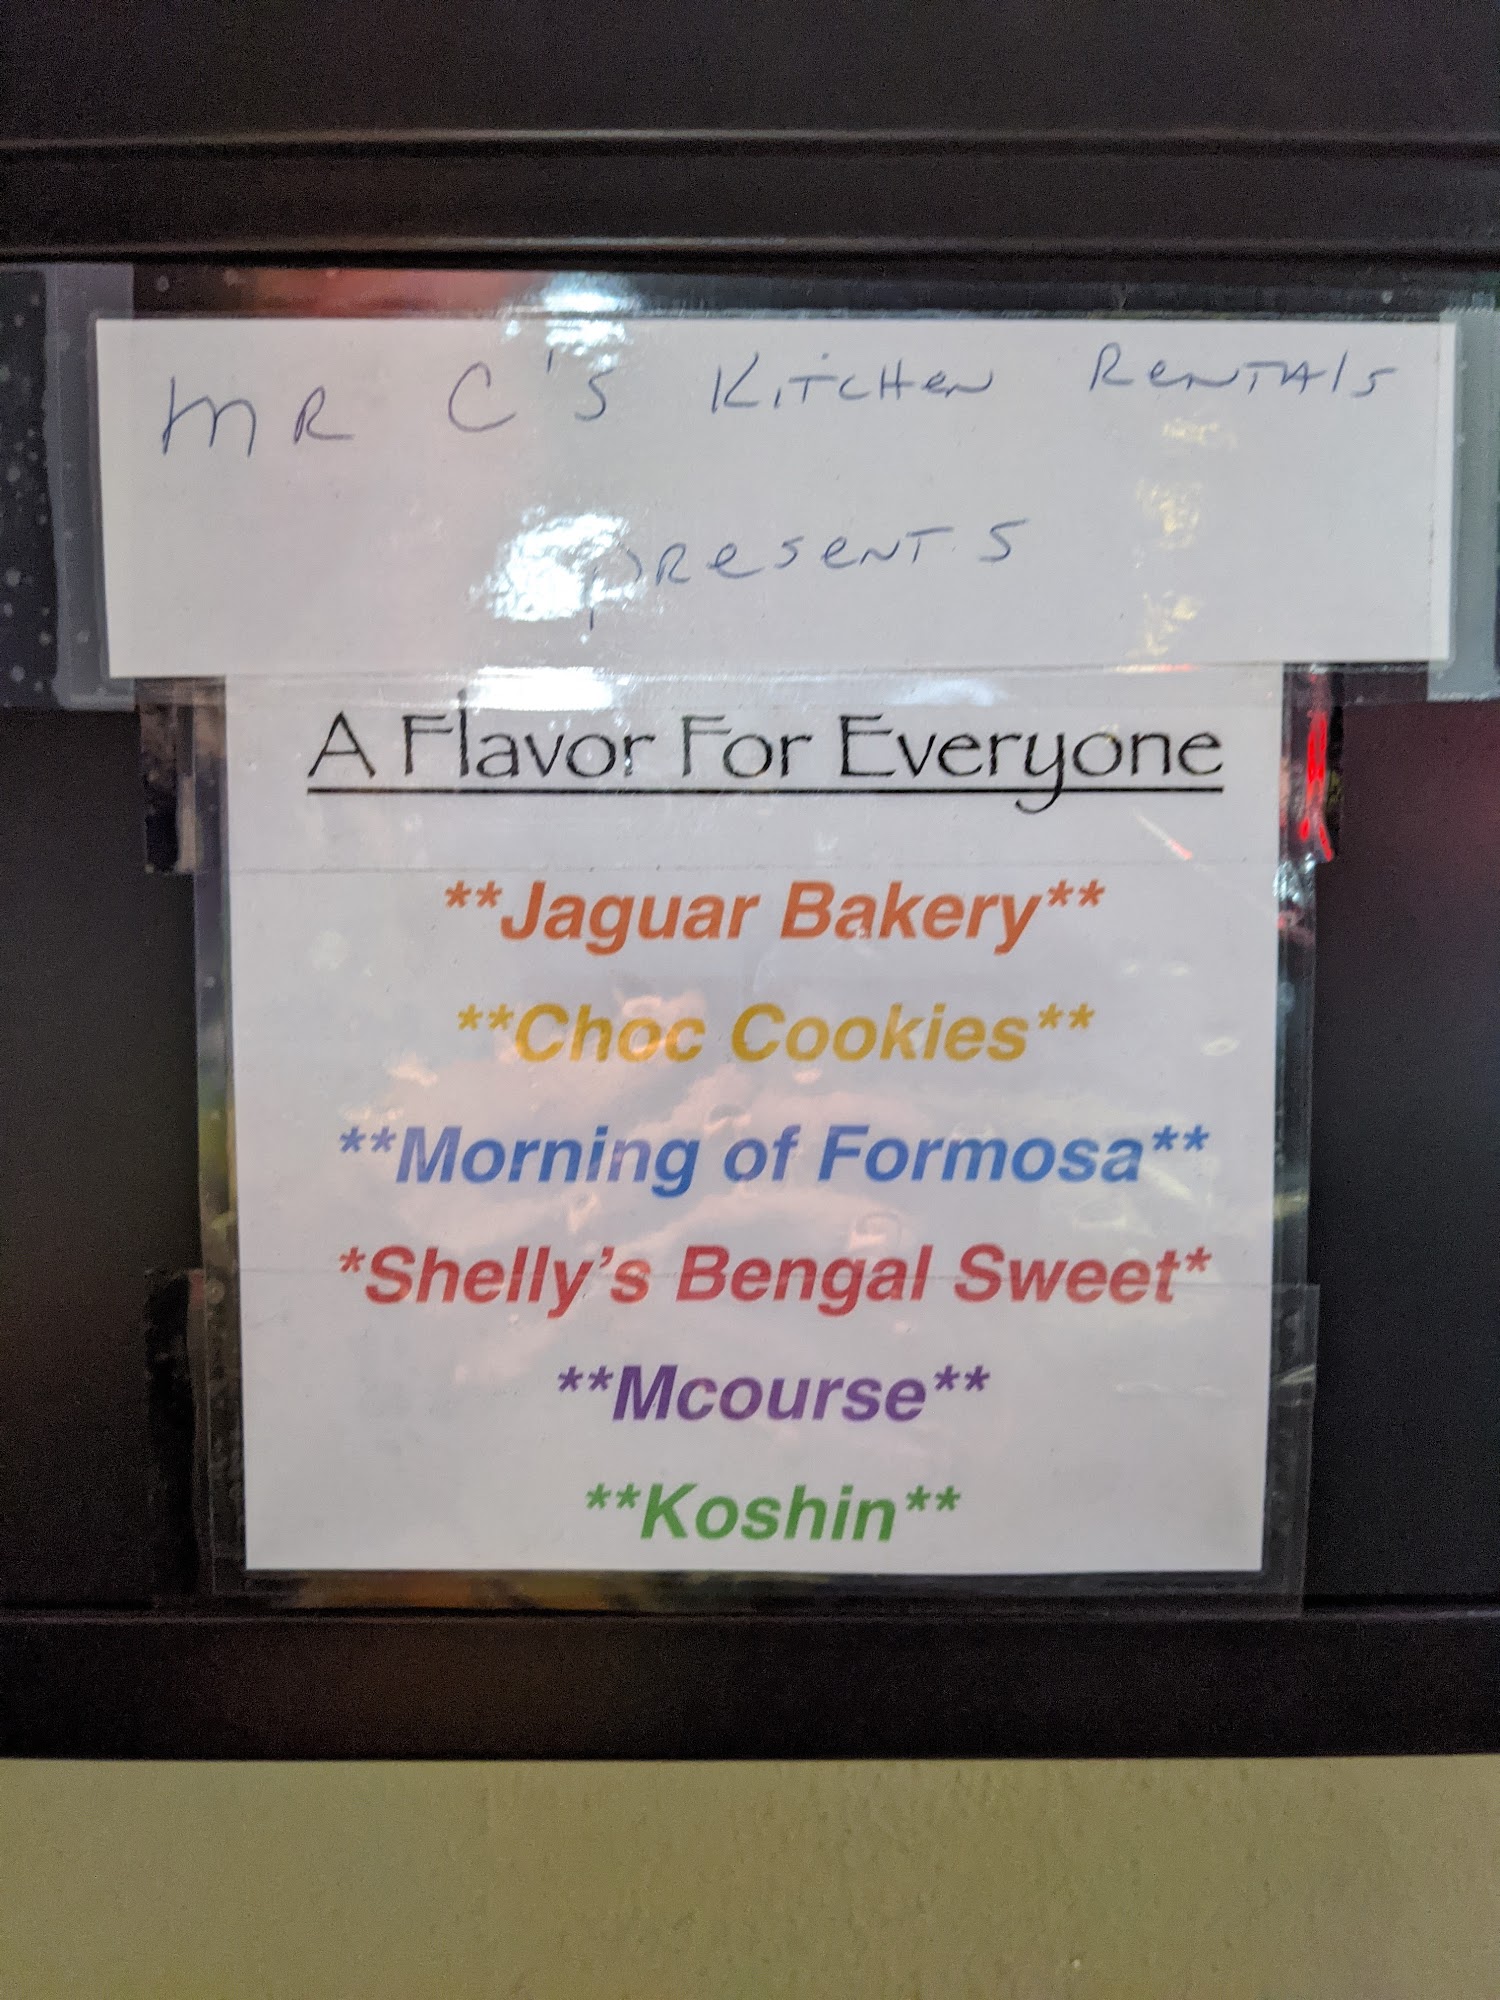 MR C'S KiTCHeN ReNTAlS
pReseNTS
A Flavor For Everyone
**Jaguar Bakery**
**Choc Cookies**
**Morning of Formosa**
*Shelly's Bengal Sweet*
**Mcourse**
**Koshin**